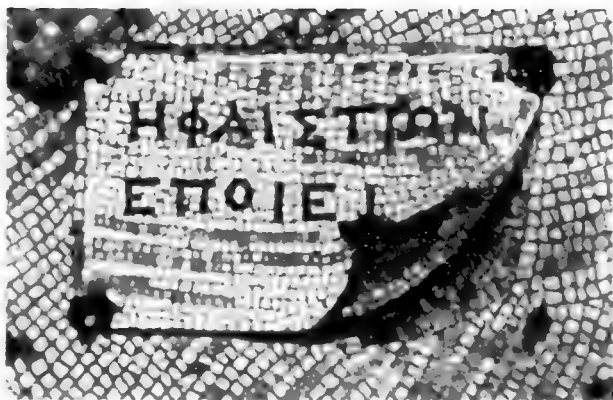 ΗΦΑΙΣΤΙΩΝ
ΕΠΟΙΕΙ